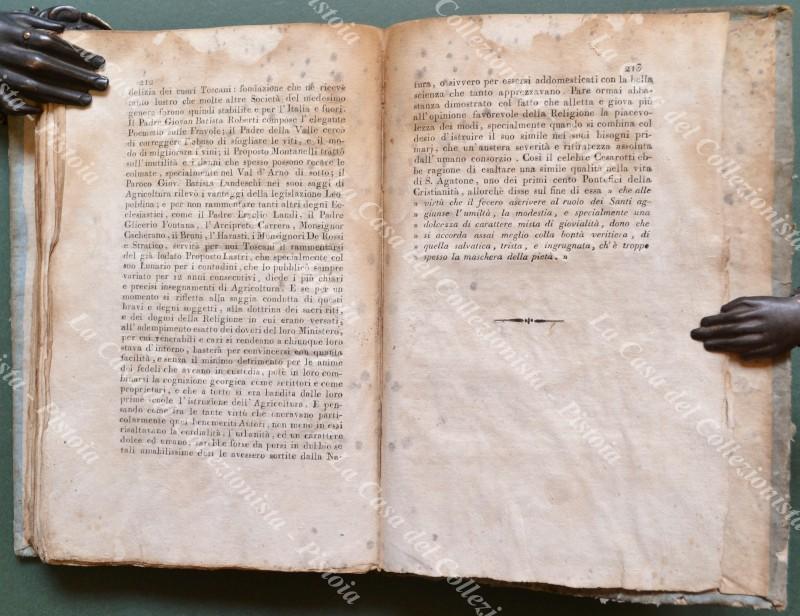 212
delizia dei cuori Toscani: fondazione che ne ricevè
tanto lustro che molte altre Società del medesimo
genere foron quindi stabilite e per l'Italia e fuori.
Il Padre Giovan Batista Roberti compose l'elegante
Poemetto sulle Fravole; il Padre della Valle cercò
di correggere l'abuso di sfogliare le viti, e il mo-
do di migliorare i vini; il Proposto Montanelli trattò
sull'inutilità e i danni che spesso possono recare le
colmate, specialmente nel Val d'Arno di sotto; il
Paroco Giov. Batista Landeschi nei suoi saggi di
Agricoltura rilevò i vantaggi della legislazione Leo-
poldina; e per non rammentare tanti altri degni Ec-
clesiastici, come il Padre Lralio Landi, il Padre
Glicerio Fontana, l'Arciprete Carrera, Monsignor
Cacherano, il Bruni, l'Harasti, i Monsignori De Rossi
e Stratico, servirà per noi Toscani il rammentarsi
del già lodato Proposto Lastri, che specialmente col
suo Lunario per i contadini, che lo pubblicò sempre
variato per 12 anni consecutivi, diede i più chiari
e precisi insegnamenti di Agricoltura. E se per un
momento si rifletta alla saggia condotta di questi
bravi e degni soggetti, alla dottrina dei sacri riti,
e dei dogmi della Religione in cui erano versati,
all'adempimento esatto dei doveri del loro Ministero,
per cui venerabili e cari si rendeano a chiunque loro
stava d'intorno, basterà per convincersi con quanta
facilità, e senza il minimo detrimento per le anime
dei fedeli che aveano in custodia, potè in loro com-
binarsi la cognizione georgica come scrittori e come
proprietari, e che a torto si era bandita dalle loro
prime scuole l'istruzione dell'Agricoltura. E pen-
sando come fra le tante virtù che onoravano parti-
colarmente quei benemeriti Autori, non meno in essi
risaltavano la cordialità, l'urbanità, ed un carattere
dolce ed umano, sarebbe forse da porsi in dubbio se
tali amabilissime doti le avessero sortite dalla Na-
213
tura, o sivvero per essersi addomesticati con la bella
scienza che tanto apprezzavano. Pare ormai abba-
stanza dimostrato col fatto che alletta e giova più
all'opinione favorevole della Religione la piacevo-
lezza dei modi, specialmente quando si combina col
decio d'istruire il suo simile nei suoi bisogni pri-
marj, che un'austera severità e ritiratezza assoluta
dall'umano consorzio. Così il celebre Cesarotti eb-
be ragione di esaltare una simile qualità nella vita
di S. Agatone, uno dei primi cento Pontefici della
Cristianità, allorchè disse sul fine di essa » che alle
» virtù che il fecero ascrivere al ruolo dei Santi ag-
» giunse l'umiltà, la modestia, e specialmente una
» dolcezza di carattere mista di giovialità, dono che
» si accorda assai meglio colla bontà veritiera, di
» quella salvatica, trista, e ingrugnata, ch'è troppo
» spesso la maschera della pietà. »
La Casa del Collezionista - Pistoia